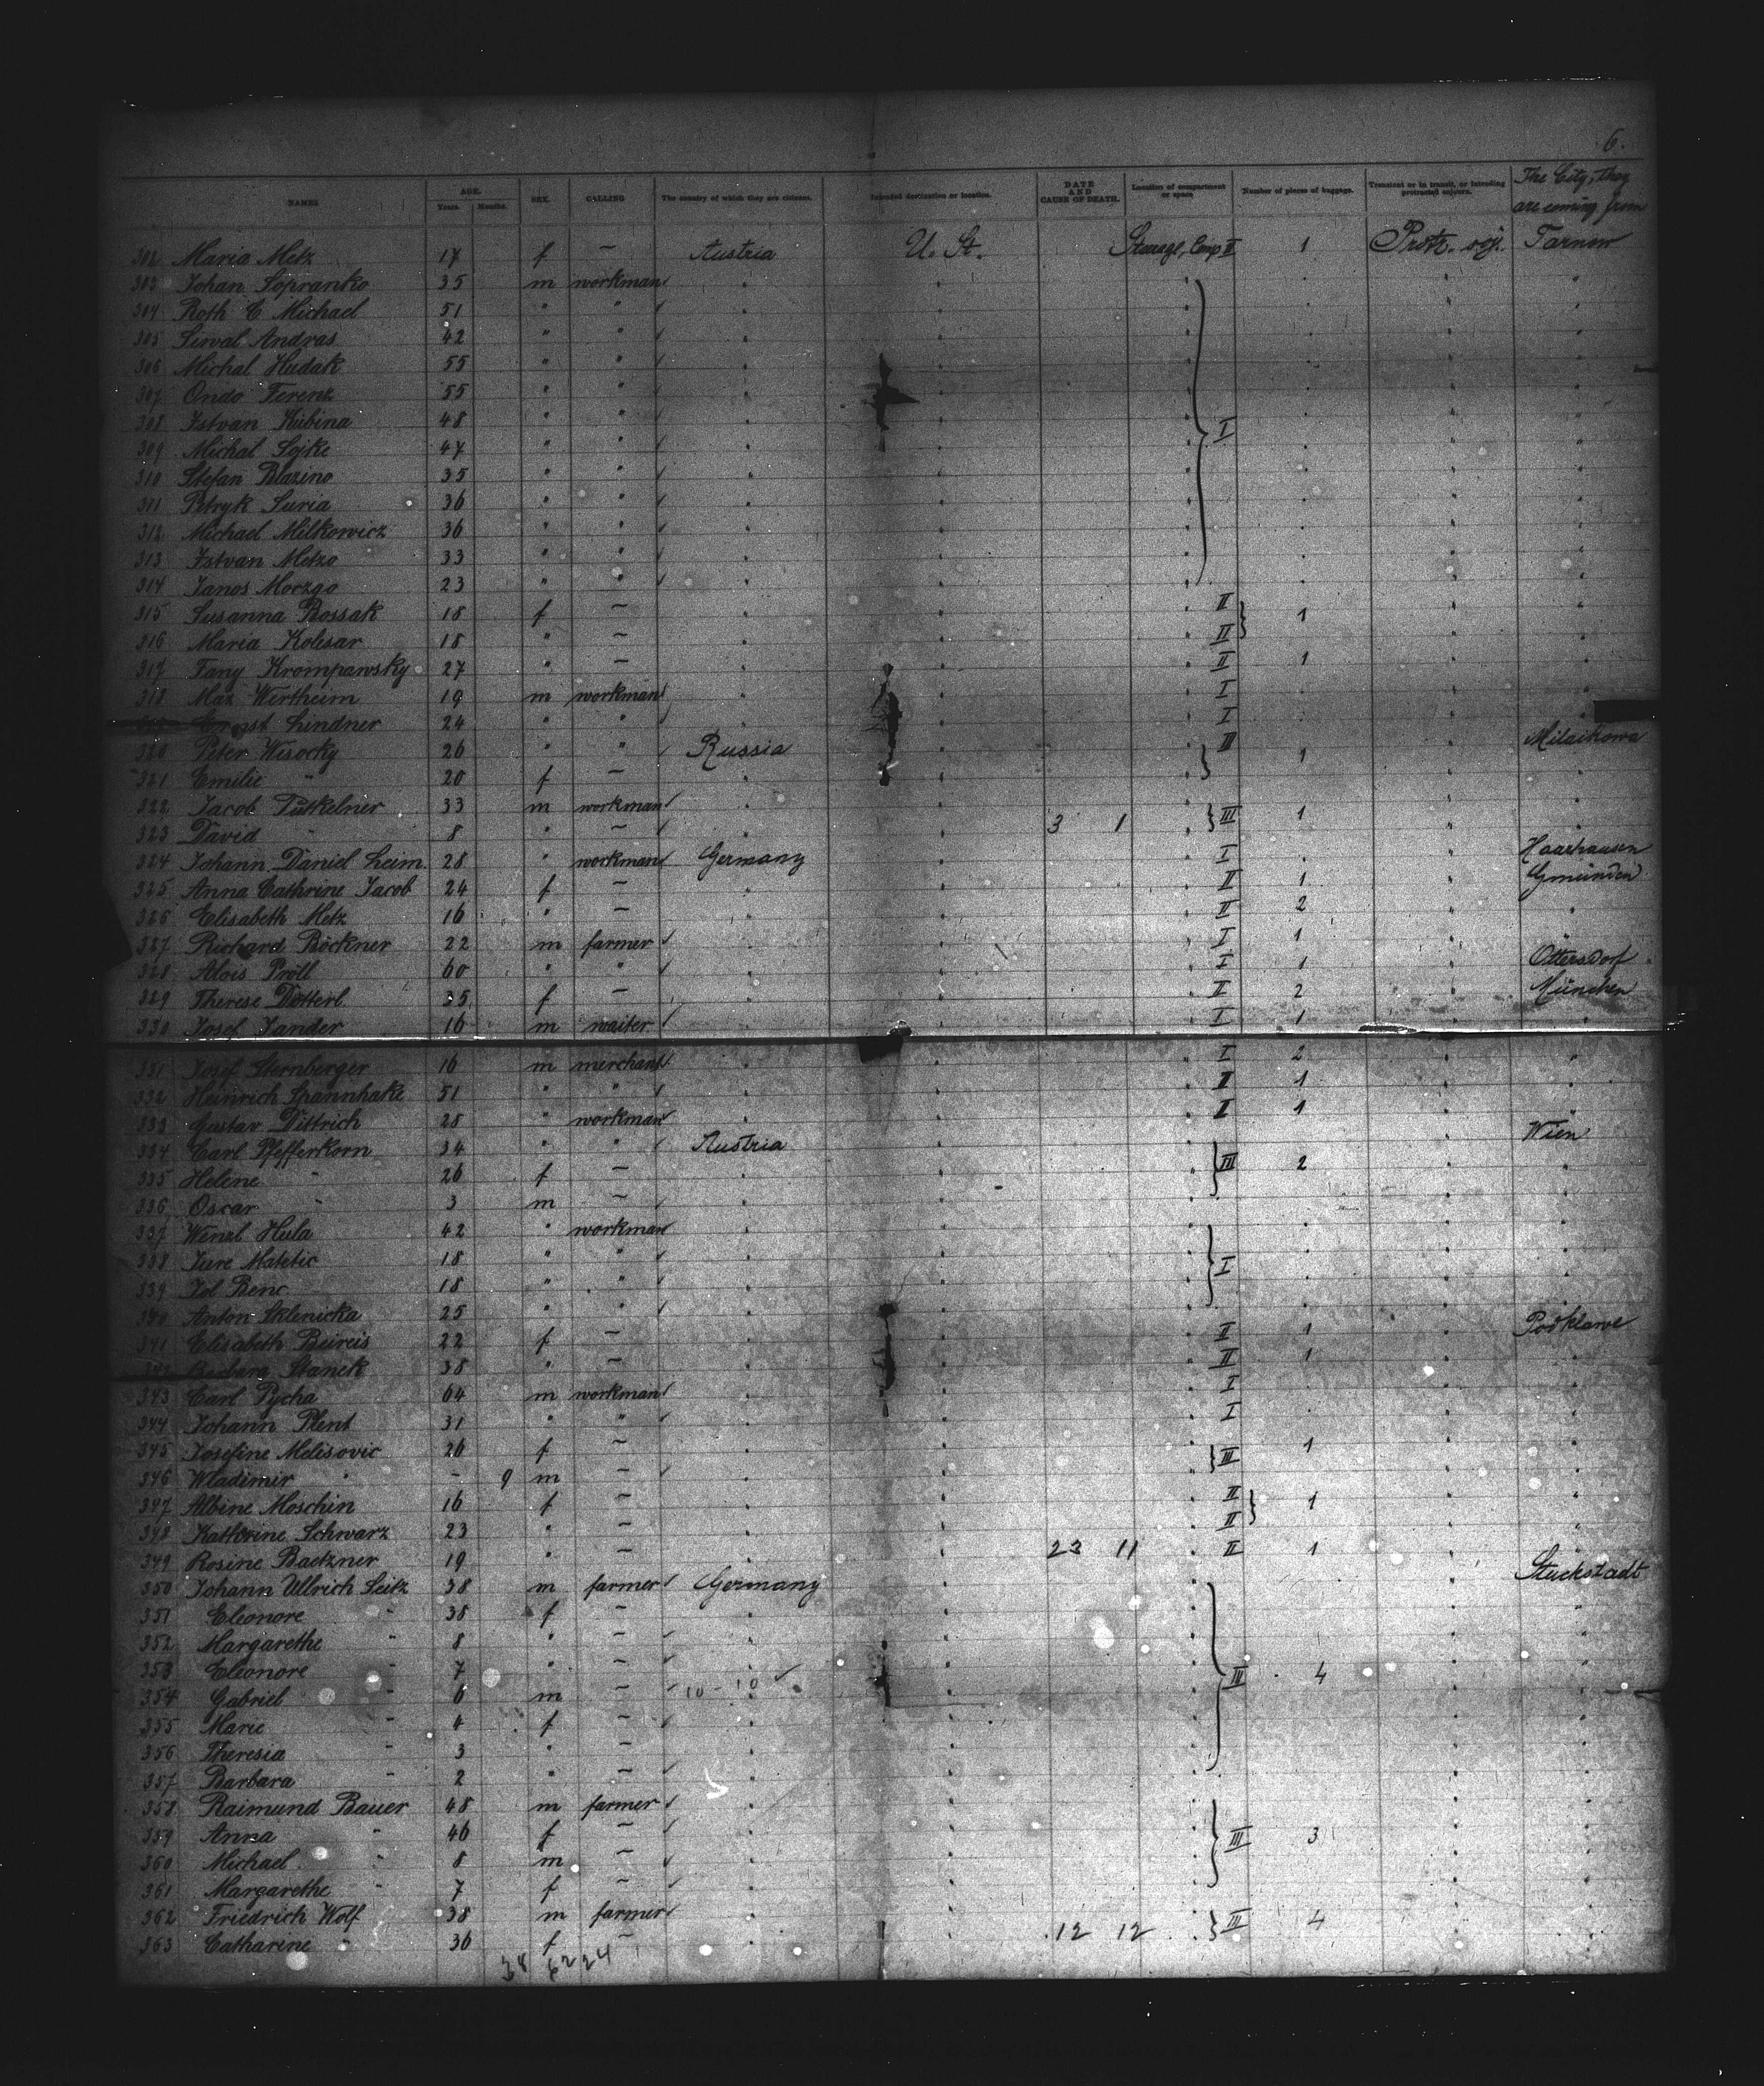 6.
NAMES AGE. Years. Months. SEX. CALLING The country of which they are citizens. Intended destination or location. DATE AND CAUSE OF DEATH. Location of compartment or space Number of pieces of baggage. Transient or in transit, or intending protracted sojourn. The City, they are coming from
302 Maria Metz 17 f — Austria U. St. Steerage, Comp II 1 Protr. soj. Tarnow
303 Johan Sopranko 35 m workman
304 Roth C Michael 51 " "
305 Sirval Andras 42 " "
306 Michal Hudak 55 " "
307 Ondo Ferenz 55 " "
308 Istvan Kubina 48 " " I
309 Michal Sojke 47 " "
310 Stefan Blazino 35 " "
311 Petryk Suria 36 " "
312 Michael Milkowicz 36 " "
313 Istvan Metzo 33 " "
314 Janos Moczgo 23 " "
315 Susanna Bossak 18 f — II 1
316 Maria Kolesar 18 " — II
317 Fany Krompawsky 27 " — II 1
318 Max Wertheim 19 m workman I
Ernst Lindner 24 " " I
320 Peter Wisocky 26 " " Russia III 1 Milaikowa
321 Emilie " 20 f —
322 Jacob Tutkelner 33 m workman III 1
323 David " 8 " — 3 1
324 Johann Daniel Heim 28 " workman Germany I Haarhausen
325 Anna Cathrine Jacob 24 f — II 1 Gmünden
326 Elisabeth Metz 16 " — II 2
327 Richard Böckner 22 m farmer I 1
328 Alois Pröll 60 " " I 1 Ottersdorf
329 Therese Dotterl 35 f — II 2 München
330 Josef Xander 16 m waiter I 1
331 Josef Sternberger 16 m merchant I 2
332 Heinrich Spannhake 51 " " I 1
333 Gustav Dittrich 28 " workman I 1
334 Carl Pfefferkorn 34 " " Austria III 2 Wien
335 Helene " 26 f —
336 Oscar " 3 m —
337 Wenzl Hula 42 " workman
338 Jure Matetic 18 " " I
339 Jol Benc 18 " "
340 Anton Sklenicka 25 " "
341 Elisabeth Beireis 22 f — II 1 Podklawe
342 Barbara Stanek 38 " — II 1
343 Carl Pycha 64 m workman I
344 Johann Plent 31 " " I
345 Josefine Melisovic 26 f — III 1
346 Wladimir " - 9 m —
347 Albine Moschin 16 f — II 1
348 Kathrine Schwarz 23 " — II
349 Rosine Baetzner 19 " — 23 11 II 1
350 Johann Ullrich Seitz 38 m farmer Germany Stuckstadt
351 Eleonore " 38 f —
352 Margarethe " 8 " —
353 Eleonore " 7 " — III 4
354 Gabriel " 6 m — 10 - 10
355 Marie " 4 f —
356 Theresia " 3 " —
357 Barbara " 2 " —
358 Raimund Bauer 48 m farmer
359 Anna " 46 f — III 3
360 Michael " 8 m —
361 Margarethe " 7 f —
362 Friedrich Wolf 38 m farmer III 4
363 Catharine " 36 f — 12 12
38 62 24